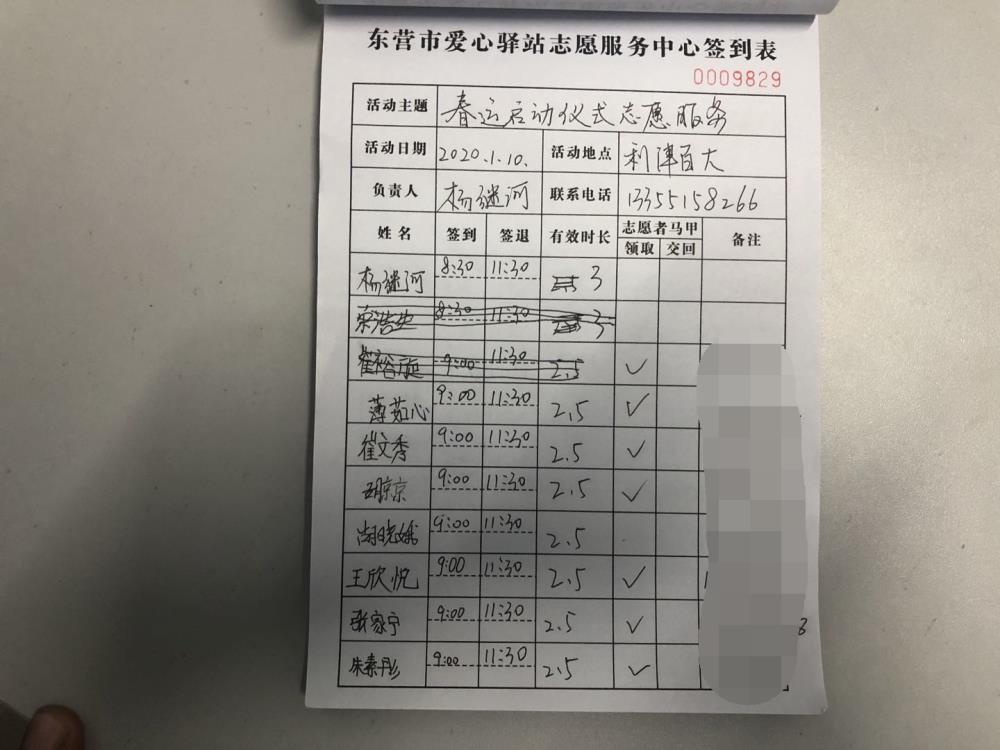 东营市爱心驿站志愿服务中心签到表
0009829
活动主题 春运启动仪式志愿服务
活动日期 2020.1.10. 活动地点 利津百大
负责人 杨继河 联系电话 13355158266
姓名 签到 签退 有效时长 志愿者马甲 备注
领取 交回
杨继河 8:30 11:30 3
8:30 11:30 3
崔裕 9:00 11:30 2.5 ✓
薄茹心 9:00 11:30 2.5 ✓
崔文秀 9:00 11:30 2.5 ✓
胡京京 9:00 11:30 2.5 ✓
尚晓娥 9:00 11:30 2.5
王欣悦 9:00 11:30 2.5 ✓
张家宁 9:00 11:30 2.5 ✓
朱素彤 9:00 11:30 2.5 ✓